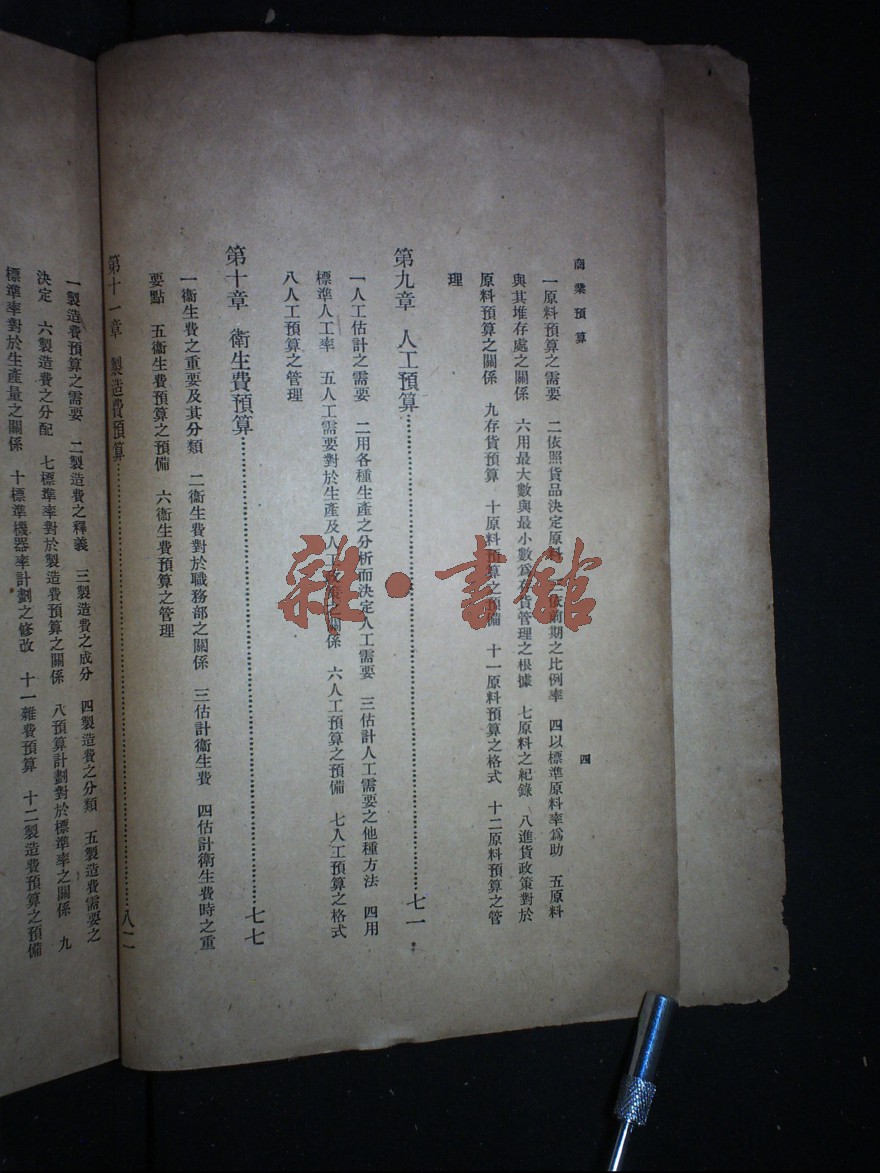 商業預算
四
一原料預算之需要 二依照貨品決定原料 依前期之比例率 四以標準原料率爲助 五原料
與其堆存處之關係 六用最大數與最小數爲存貨管理之根據 七原料之紀錄 八進貨政策對於
原料預算之關係 九存貨預算 十原料預算之預備 十一原料預算之格式 十二原料預算之管
理
第九章 人工預算……七一
一人工估計之需要 二用各種生產之分析而決定人工需要 三估計人工需要之他種方法 四用
標準人工率 五人工需要對於生產及人工政策之關係 六人工預算之預備 七人工預算之格式
八人工預算之管理
第十章 衛生費預算……七七
一衛生費之重要及其分類 二衛生費對於職務部之關係 三估計衛生費 四估計衛生費時之重
要點 五衛生費預算之預備 六衛生費預算之管理
第十一章 製造費預算……八二
一製造費預算之需要 二製造費之釋義 三製造費之成分 四製造費之分類 五製造費需要之
決定 六製造費之分配 七標準率對於製造費預算之關係 八預算計劃對於標準率之關係 九
標準率對於生產量之關係 十標準機器率計劃之修改 十一雜費預算 十二製造費預算之預備
雜·書館